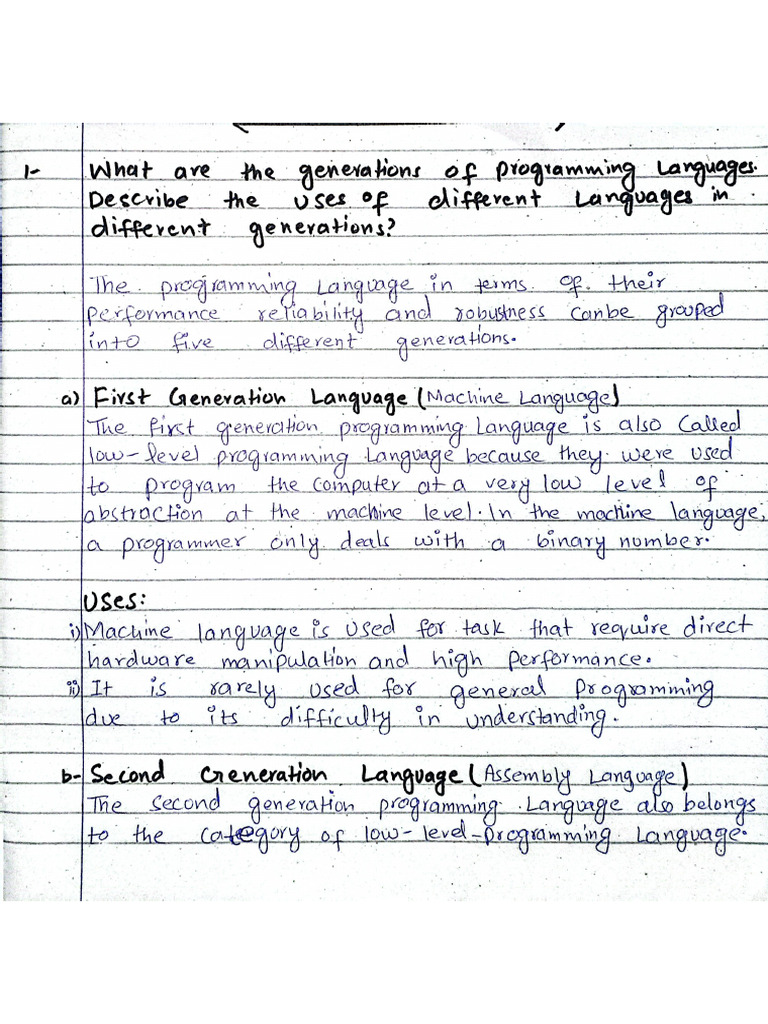 1- What are the generations of programming Languages.
Describe the uses of different Languages in
different generations?
The programming Language in terms of their
performance reliability and robustness canbe grouped
into five different generations.
a) First Generation Language (Machine Language)
The first generation programming Language is also Called
low-level programming Language because they were used
to program the computer at a very low level of
abstraction at the machine level. In the machine language,
a programmer only deals with a binary number.
Uses:
i) Machine language is used for task that require direct
hardware manipulation and high performance.
ii) It is rarely used for general programming
due to its difficulty in understanding.
b- Second Generation Language (Assembly Language)
The second generation programming Language also belongs
to the category of low-level-programming Language.